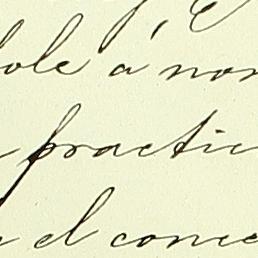 ole á nom
practic
el conce